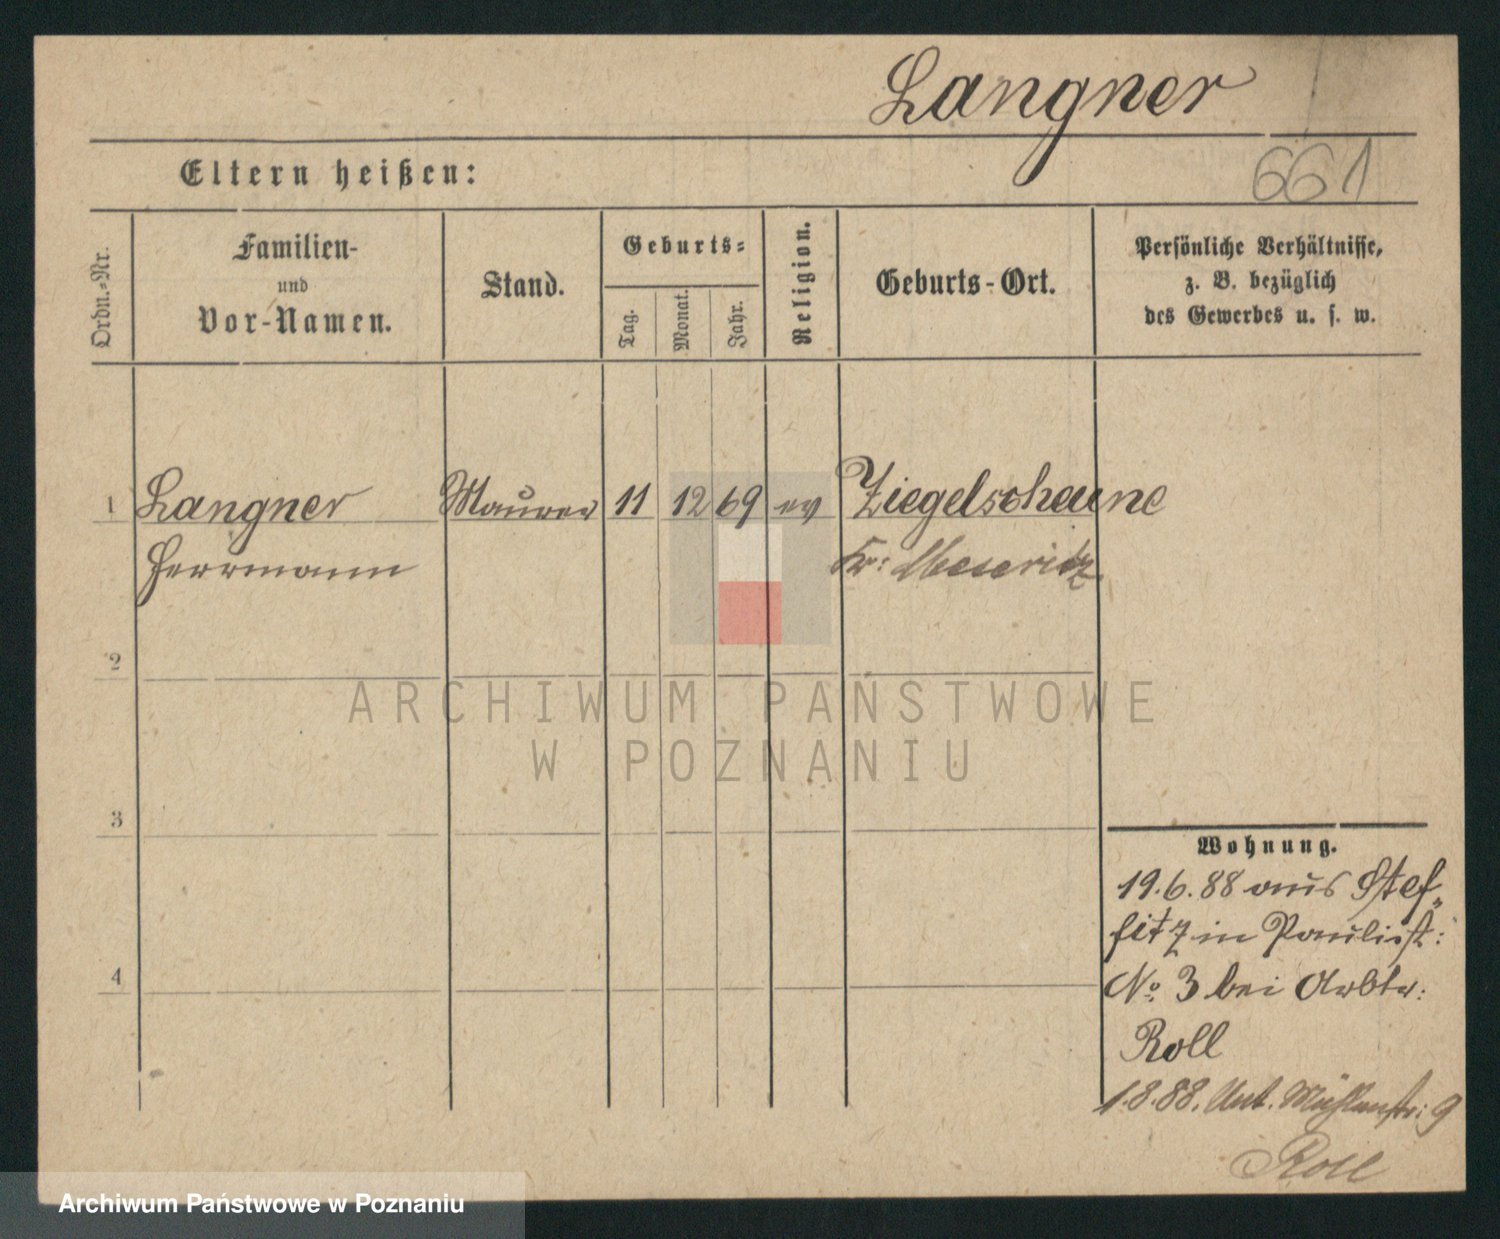 Langner
661
Eltern heißen:
Ordn.-Nr.
Familien-
und
Vor-Namen.
Stand.
Geburts-
Tag.
Monat.
Jahr.
Religion.
Geburts-Ort.
Persönliche Verhältnisse,
z. B. bezüglich
des Gewerbes u. s. w.
1 Langner Maurer 11 12 69 ev Ziegelscheune
Herrmann Kr: Meseritz
2
3
4
Wohnung.
19.6.88 aus Stef„
fitz in Paulist:
No. 3 bei Arbtr:
Roll
1.8.88. Unt. Mühlenstr: 9
Roll
ARCHIWUM PAŃSTWOWE
W POZNANIU
Archiwum Państwowe w Poznaniu